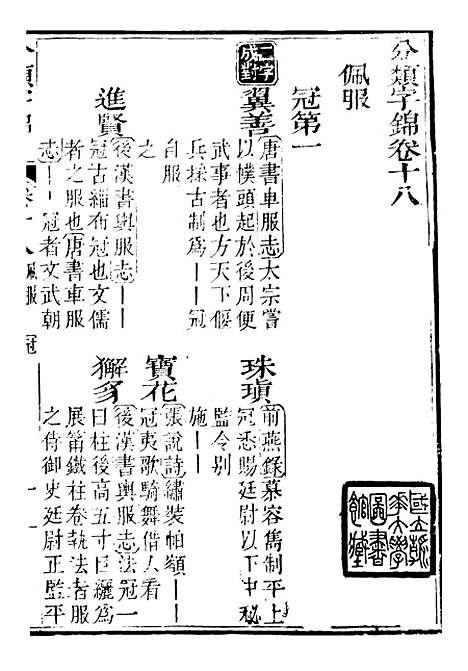 分類字錦卷十八
佩服
冠第一
二字成對
翼善
唐書車服志太宗嘗
以幞頭起於後周便
武事者也方天下偃
兵採古制爲丨丨冠
自服
之
珠瑱
前燕錄慕容儁制平上
冠悉賜廷尉以下中秘
監令别
施丨丨
寶花
張說詩繡裝帕額丨丨
冠夷歌騎舞借人看
進賢
後漢書輿服志丨丨
冠古緇布冠也文儒
者之服也唐書車服
志丨丨冠者文武朝
獬豸
後漢書輿服志法冠一
曰柱後高五寸曰纚爲
展筩鐵柱卷執法者服
之侍御史廷尉正監平
分類字錦
卷十八
佩服
冠
一